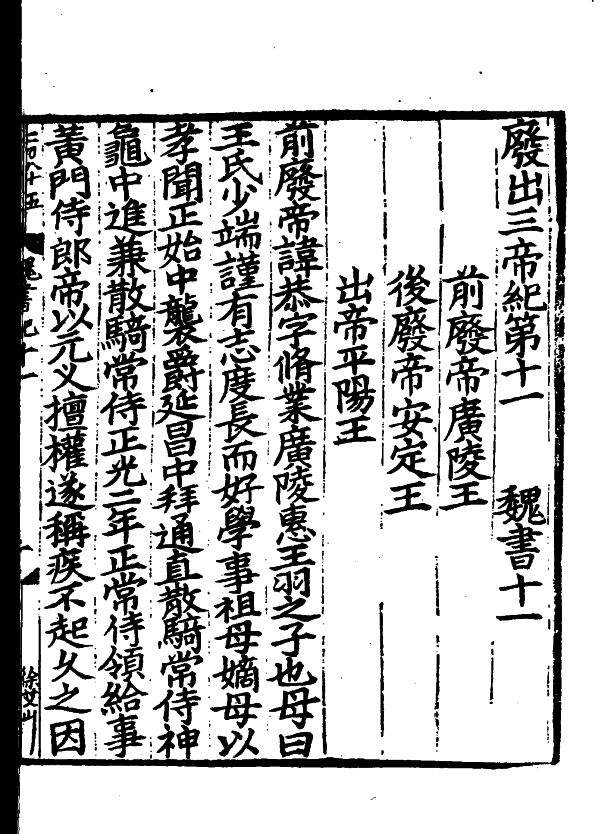 廢出三帝紀第十一　魏書十一
前廢帝廣陵王
後廢帝安定王
出帝平陽王
前廢帝諱恭字脩業廣陵惠王羽之子也母曰
王氏少端謹有志度長而好學事祖母嫡母以
孝聞正始中襲爵延昌中拜通直散騎常侍神
龜中進兼散騎常侍正光二年正常侍領給事
黃門侍郎帝以元乂擅權遂稱疾不起久之因
魏書紀十一